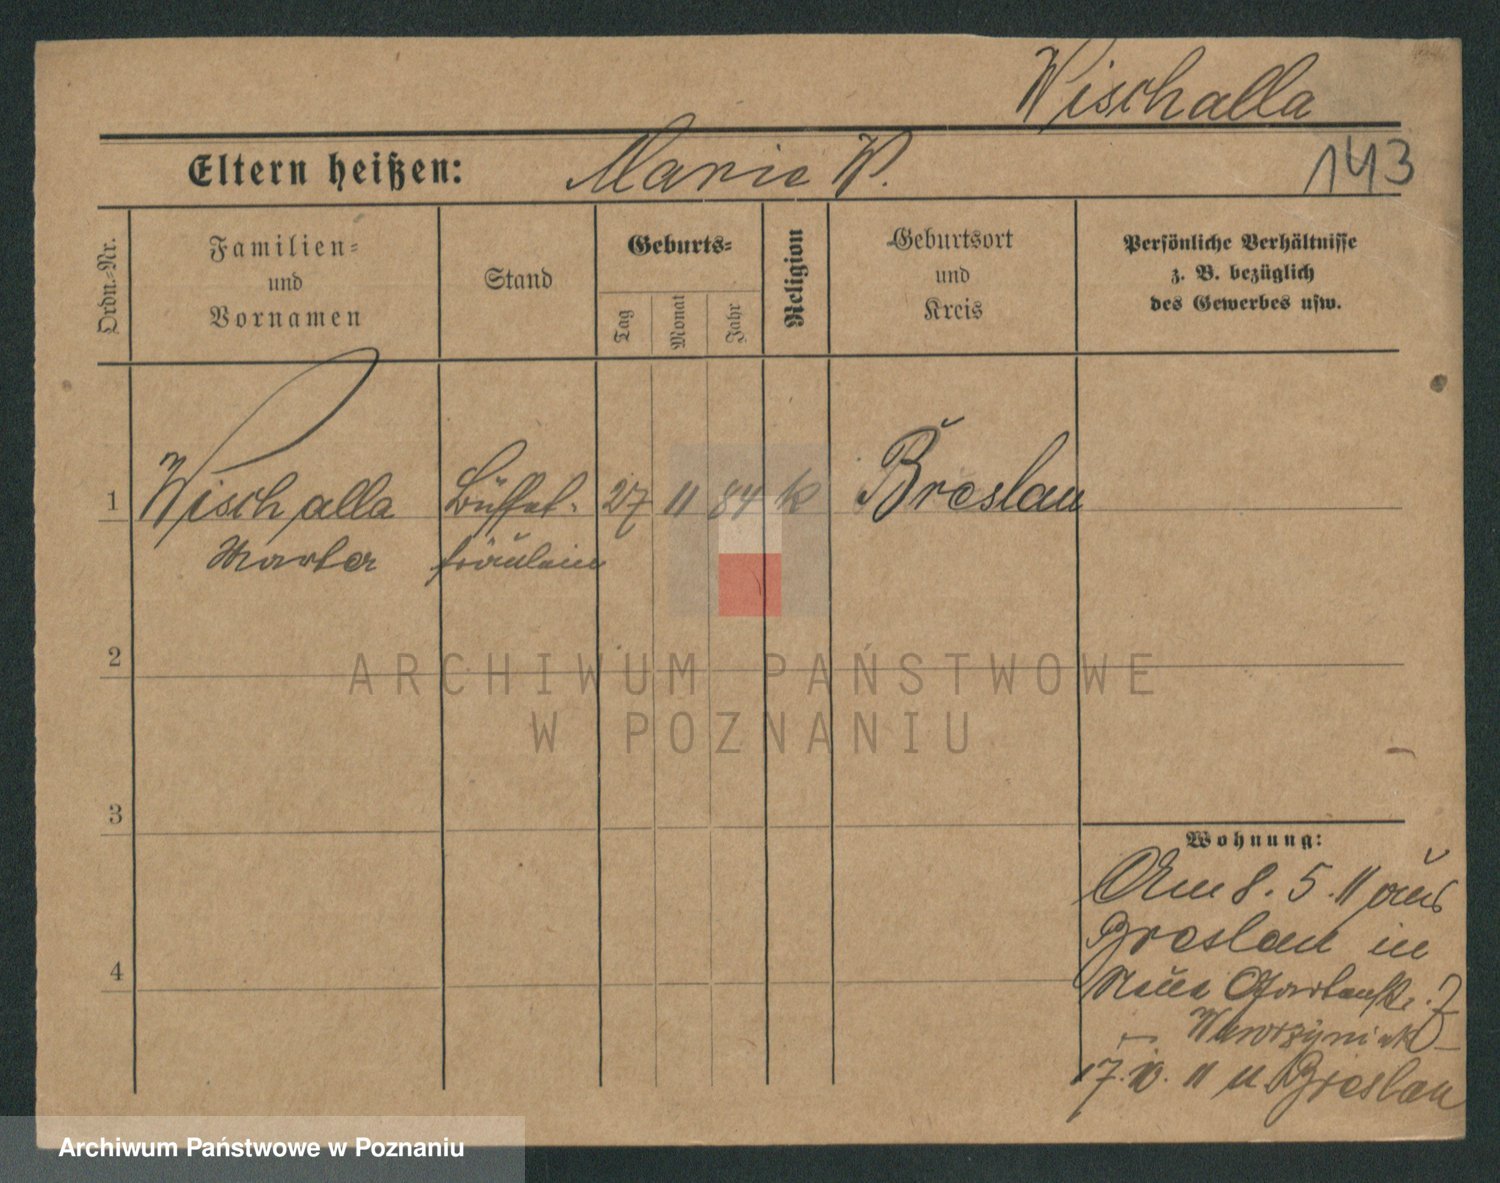 Wischalla
Eltern heißen: Marie W.
143
Ordn.-Nr.
Familien-
und
Vornamen
Stand
Geburts-
Tag
Monat
Jahr
Religion
Geburtsort
und
Kreis
Persönliche Verhältnisse
z. B. bezüglich
des Gewerbes usw.
1 Wischalla Büffet- 27 11 84 k Breslau
Marta fräulein
2
3
4
Wohnung:
Am 8. 5. 11 aus
Breslau in
Neue Gartenstr. 7
Wawrzyniak
17. 10. 11 n. Breslau
ARCHIWUM PAŃSTWOWE
W POZNANIU
Archiwum Państwowe w Poznaniu